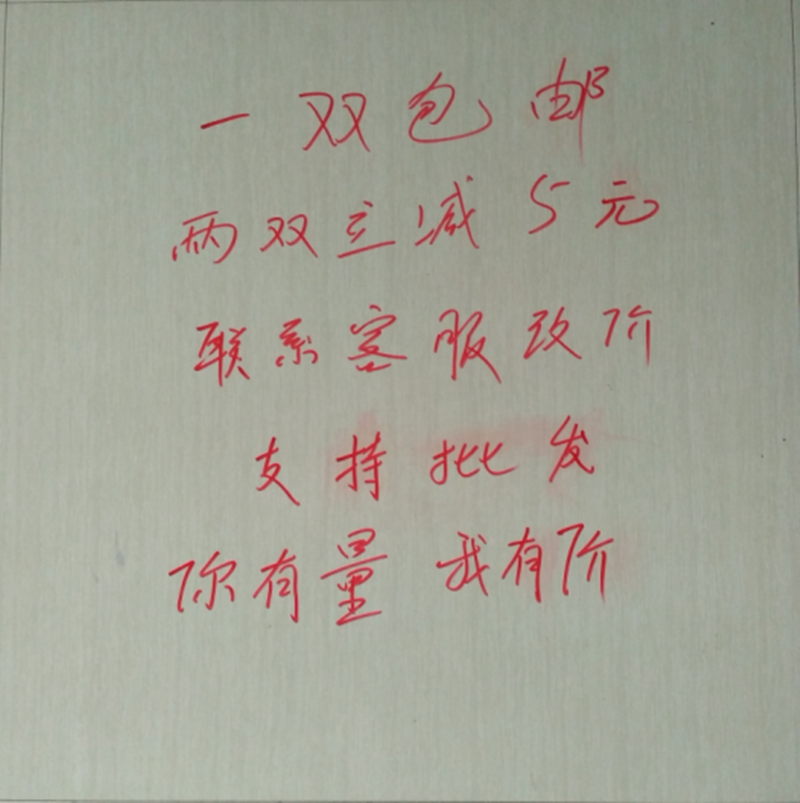 一双包邮
两双立减5元
联系客服改价
支持批发
你有量 我有价